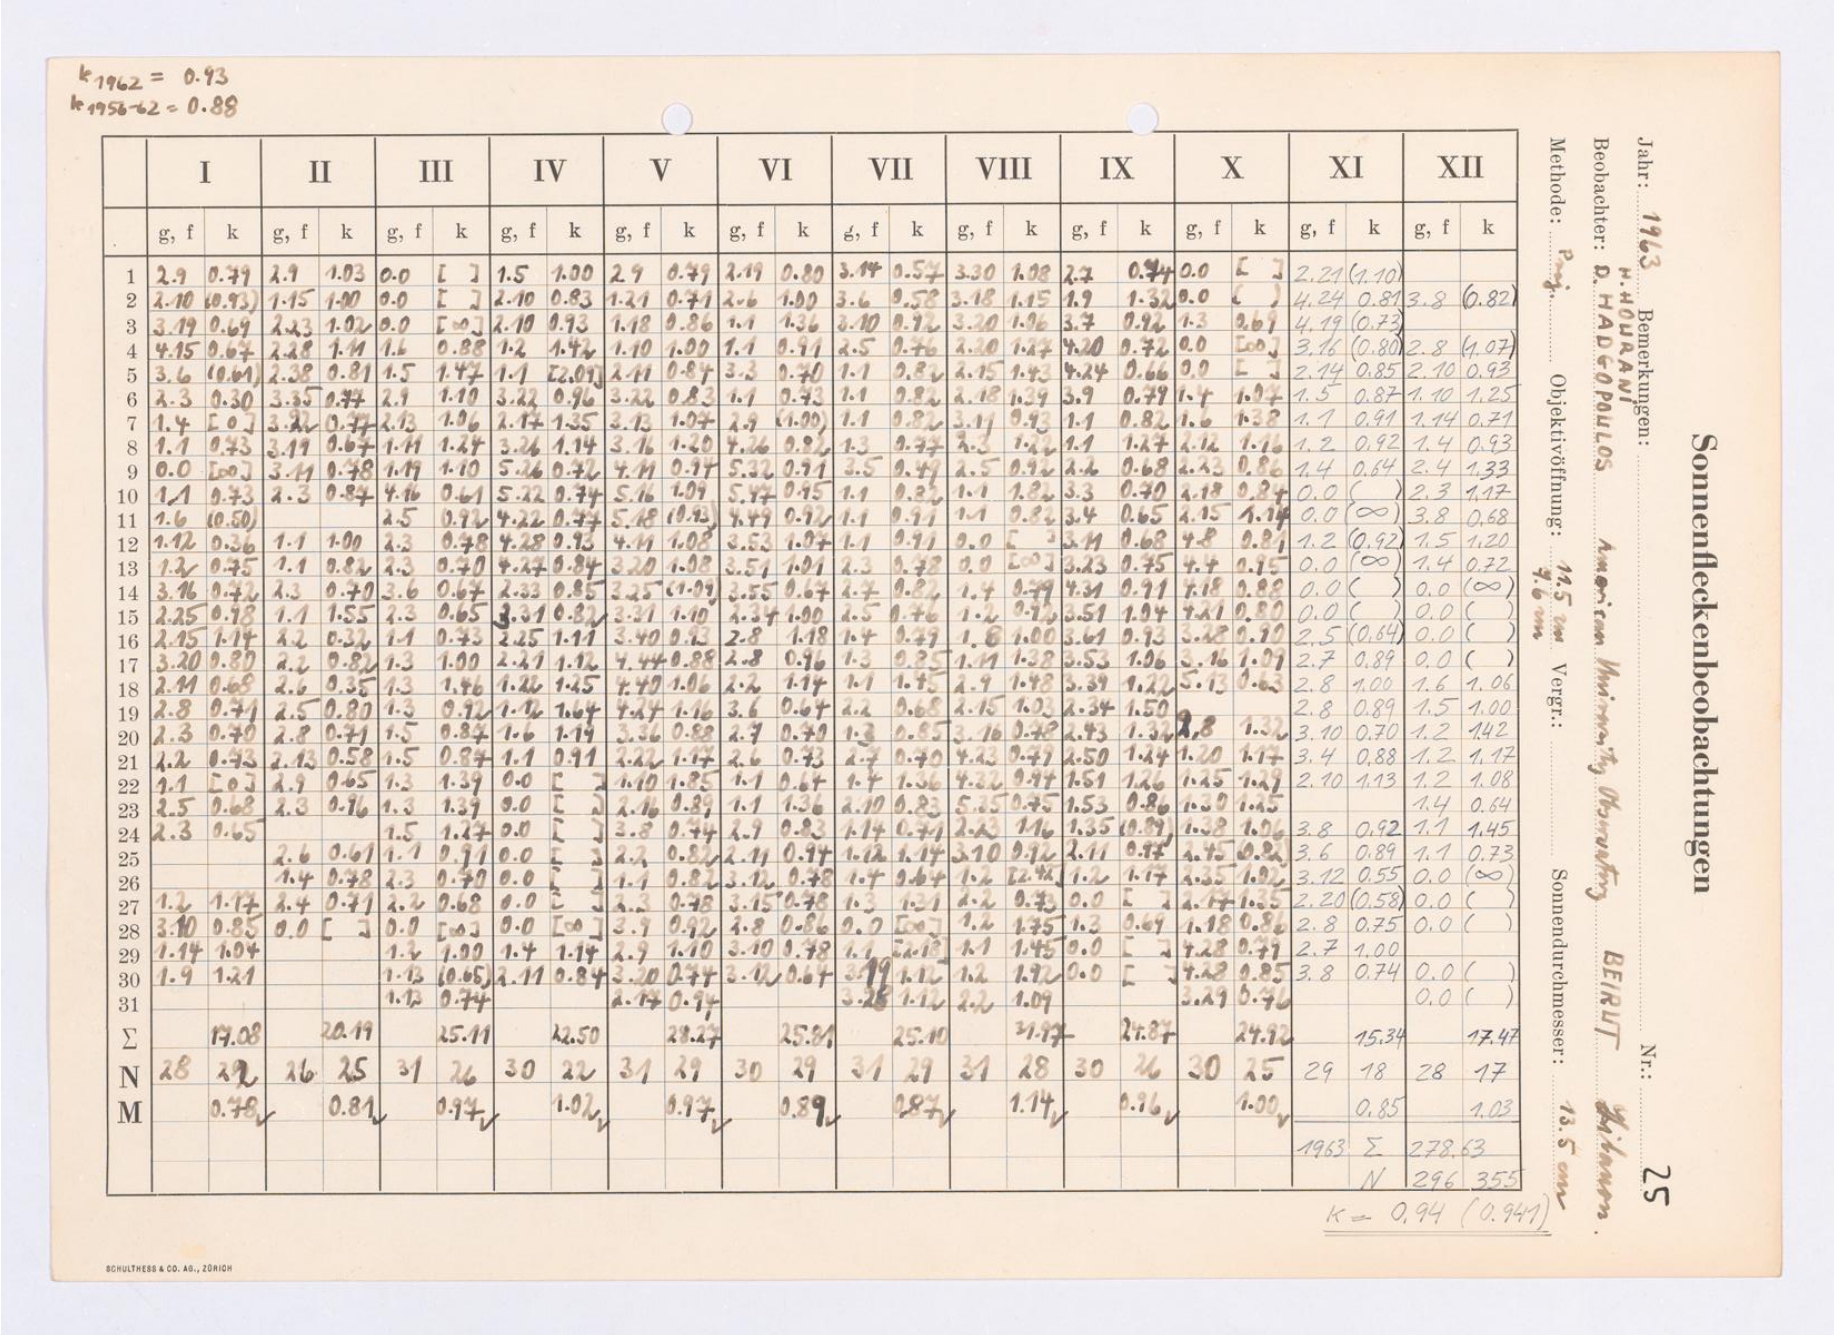 k1962 = 0.93
k1956-62 = 0.88
I II III IV V VI VII VIII IX X XI XII
g, f k g, f k g, f k g, f k g, f k g, f k g, f k g, f k g, f k g, f k g, f k g, f k
1 2.9 0.79 2.9 1.03 0.0 [ ] 1.5 1.00 2.9 0.79 2.19 0.80 3.14 0.57 3.30 1.08 2.7 0.74 0.0 [ ] 2.21 (1.10)
2 2.10 (0.93) 1.15 1.00 0.0 [ ] 2.10 0.83 1.21 0.71 2.6 1.00 3.6 0.58 3.18 1.15 1.9 1.32 0.0 ( ) 4.24 0.81 3.8 (0.82)
3 3.19 0.69 2.23 1.02 0.0 [∞] 2.10 0.93 1.18 0.86 1.1 1.36 3.10 0.92 3.20 1.06 3.7 0.92 1.3 0.69 4.19 (0.73)
4 4.15 0.67 2.28 1.11 1.6 0.88 1.2 1.42 1.10 1.00 1.1 0.91 2.5 0.76 2.20 1.27 4.20 0.72 0.0 [∞] 3.16 (0.80) 2.8 (1.07)
5 3.6 (0.61) 2.38 0.81 1.5 1.47 1.1 [2.09] 2.11 0.84 3.3 0.70 1.1 0.82 2.15 1.43 4.24 0.66 0.0 [ ] 2.14 0.85 2.10 0.93
6 2.3 0.30 3.35 0.77 2.9 1.10 3.22 0.96 3.22 0.83 1.1 0.73 1.1 0.82 2.18 1.39 3.9 0.79 1.4 1.07 1.5 0.87 1.10 1.25
7 1.4 [0] 3.22 0.77 2.13 1.06 2.17 1.35 3.13 1.07 2.9 (1.00) 1.1 0.82 3.11 0.93 1.1 0.82 1.6 1.38 1.1 0.91 1.14 0.71
8 1.1 0.73 3.19 0.67 1.11 1.24 3.26 1.14 3.16 1.20 4.26 0.82 1.3 0.77 2.3 1.22 1.1 1.27 2.12 1.16 1.2 0.92 1.4 0.93
9 0.0 [∞] 3.11 0.78 1.19 1.10 5.26 0.72 4.11 0.94 5.32 0.91 3.5 0.49 2.5 0.92 2.2 0.68 2.23 0.86 1.4 0.64 2.4 1.33
10 1.1 0.73 2.3 0.87 4.16 0.61 5.22 0.74 5.16 1.09 5.47 0.95 1.1 0.82 1.1 1.82 3.3 0.70 2.18 0.84 0.0 ( ) 2.3 1.17
11 1.6 (0.50) 2.5 0.92 4.22 0.77 5.18 (0.93) 4.49 0.92 1.1 0.91 1.1 0.82 3.4 0.65 2.15 1.14 0.0 (∞) 3.8 0.68
12 1.12 0.36 1.1 1.00 2.3 0.78 4.28 0.93 4.11 1.08 3.53 1.07 1.1 0.91 0.0 [ ] 3.11 0.68 4.8 0.81 1.2 (0.92) 1.5 1.20
13 1.2 0.75 1.1 0.82 2.3 0.70 4.27 0.84 3.20 1.08 3.51 1.01 2.3 0.78 0.0 [∞] 3.23 0.75 4.4 0.95 0.0 (∞) 1.4 0.72
14 3.16 0.72 2.3 0.70 3.6 0.67 2.33 0.85 3.25 (1.09) 3.55 0.67 2.7 0.82 1.4 0.79 4.31 0.91 4.18 0.88 0.0 ( ) 0.0 (∞)
15 2.25 0.98 1.1 1.55 2.3 0.65 3.31 0.82 3.31 1.10 2.34 1.00 2.5 0.76 1.2 0.92 3.51 1.04 4.21 0.80 0.0 ( ) 0.0 ( )
16 2.15 1.14 2.2 0.32 1.1 0.73 2.25 1.11 3.40 0.93 2.8 1.18 1.4 0.79 1.8 1.00 3.61 0.93 3.28 0.90 2.5 (0.64) 0.0 ( )
17 3.20 0.80 2.2 0.82 1.3 1.00 2.21 1.12 4.44 0.88 2.8 0.96 1.3 0.85 1.11 1.38 3.53 1.06 3.16 1.09 2.7 0.89 0.0 ( )
18 2.11 0.68 2.6 0.35 1.3 1.46 1.22 1.25 4.40 1.06 2.2 1.14 1.1 1.45 2.9 1.48 3.39 1.22 5.13 0.63 2.8 1.00 1.6 1.06
19 2.8 0.71 2.5 0.80 1.3 0.92 1.12 1.64 4.24 1.16 3.6 0.64 2.2 0.68 2.15 1.03 2.34 1.50 2.8 0.89 1.5 1.00
20 2.3 0.70 2.8 0.71 1.5 0.87 1.6 1.19 3.36 0.88 2.7 0.70 1.3 0.85 3.16 0.78 2.43 1.32 2.8 1.32 3.10 0.70 1.2 1.42
21 2.2 0.73 2.13 0.58 1.5 0.87 1.1 0.91 2.22 1.17 2.6 0.73 2.7 0.70 4.23 0.79 2.50 1.24 1.20 1.17 3.4 0.88 1.2 1.17
22 1.1 [0] 2.9 0.65 1.3 1.39 0.0 [ ] 1.10 1.85 1.1 0.64 1.4 1.36 4.32 0.94 1.51 1.26 1.25 1.29 2.10 1.13 1.2 1.08
23 2.5 0.68 2.3 0.96 1.3 1.39 0.0 [ ] 2.16 0.89 1.1 1.36 2.10 0.83 5.25 0.75 1.53 0.86 1.30 1.25 1.4 0.64
24 2.3 0.65 1.5 1.27 0.0 [ ] 3.8 0.74 2.9 0.83 1.14 0.71 2.23 1.16 1.35 (0.89) 1.38 1.06 3.8 0.92 1.1 1.45
25 2.6 0.61 1.1 0.91 0.0 [ ] 2.2 0.82 2.11 0.94 1.12 1.14 3.10 0.92 2.11 0.97 2.45 (0.82) 3.6 0.89 1.1 0.73
26 1.4 0.78 2.3 0.70 0.0 [ ] 1.1 0.82 3.12 0.78 1.4 0.64 1.2 [2.42] 1.2 1.17 2.35 1.02 3.12 0.55 0.0 (∞)
27 1.2 1.17 2.4 0.71 2.2 0.68 0.0 [ ] 2.3 0.78 3.15 0.78 1.3 1.31 2.2 0.73 0.0 [ ] 2.17 1.35 2.20 (0.58) 0.0 ( )
28 3.10 0.85 0.0 [ ] 0.0 [∞] 0.0 [∞] 3.9 0.92 2.8 0.86 0.0 [∞] 1.2 1.75 1.3 0.69 1.18 0.86 2.8 0.75 0.0 ( )
29 1.14 1.04 1.2 1.00 1.4 1.14 2.9 1.10 3.10 0.78 1.1 [2.18] 1.1 1.45 0.0 [ ] 4.28 0.79 2.7 1.00
30 1.9 1.21 1.13 (0.65) 2.11 0.84 3.20 0.74 3.12 0.64 3.19 1.12 1.2 1.92 0.0 [ ] 4.28 0.85 3.8 0.74 0.0 ( )
31 1.13 0.74 2.17 0.94 3.28 1.12 2.2 1.09 3.29 0.76 0.0 ( )
Σ 17.08 20.19 25.11 22.50 28.27 25.81 25.10 31.97 24.87 24.92 15.34 17.47
N 28 22 26 25 31 26 30 22 31 29 30 29 31 29 31 28 30 26 30 25 29 18 28 17
M 0.78 0.81 0.97 1.02 0.97 0.89 0.87 1.14 0.96 1.00 0.85 1.03
1963 Σ 278.63
N 296 355
K = 0,94 (0.941)
SCHULTHESS & CO. AG., ZÜRICH
Sonnenfleckenbeobachtungen
Jahr: 1963 Bemerkungen: Nr.: 25
H. HOURANI
Beobachter: D. HADGOPOULOS American University Observatory BEIRUT Libanon.
Methode: Proj. Objektivöffnung: 11.5 cm Vergr.: Sonnendurchmesser: 13.5 cm
9.6 cm